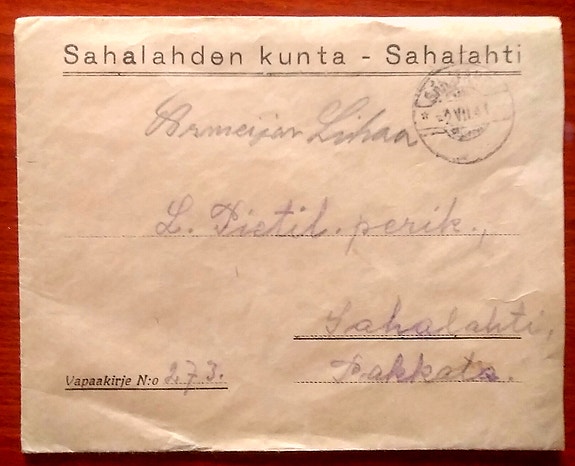 Sahalahden kunta - Sahalahti
Armeijan Lihaa
L. Pietil. perik.,
Sahalahti,
Pakkala.
Vapaakirje N:o 273.